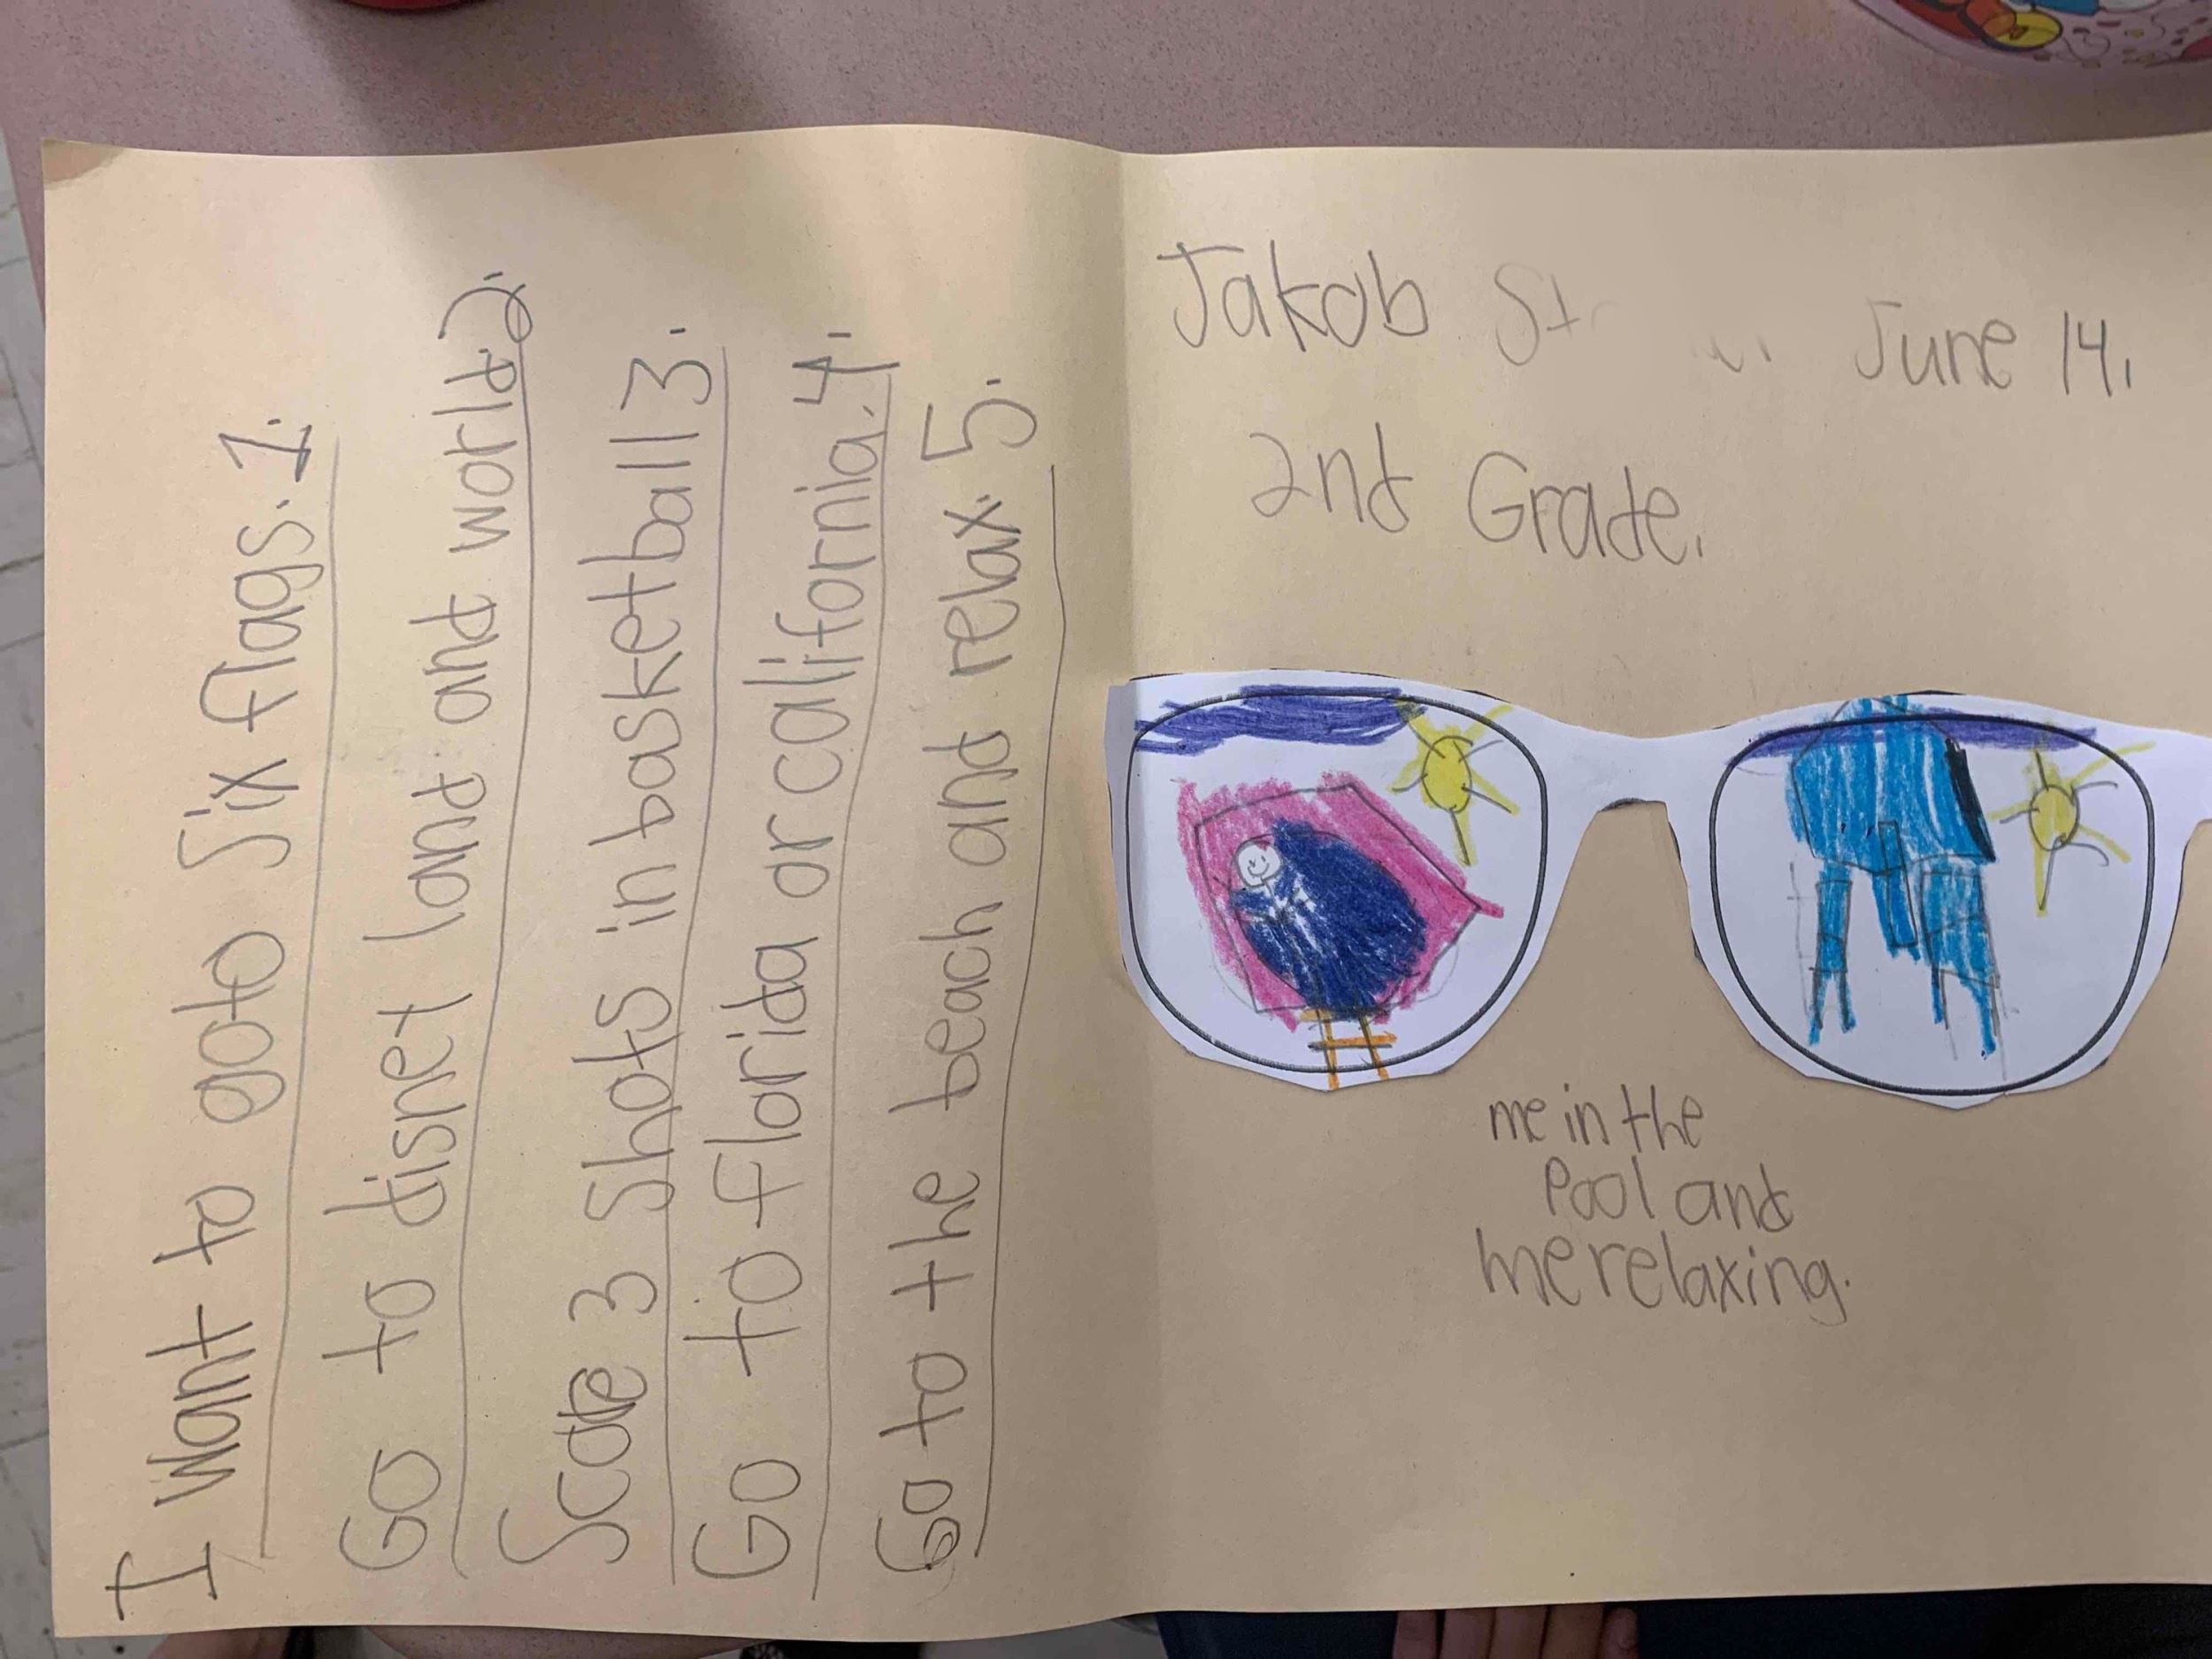 I want to goto Six flags. 1.
Go to disnet land and world 2.
Score 3 Shots in basketball 3.
Go to florida or california. 4.
Go to the beach and relax. 5.
Jakob June 14.
2nd Grade.
me in the
Pool and
me relaxing.